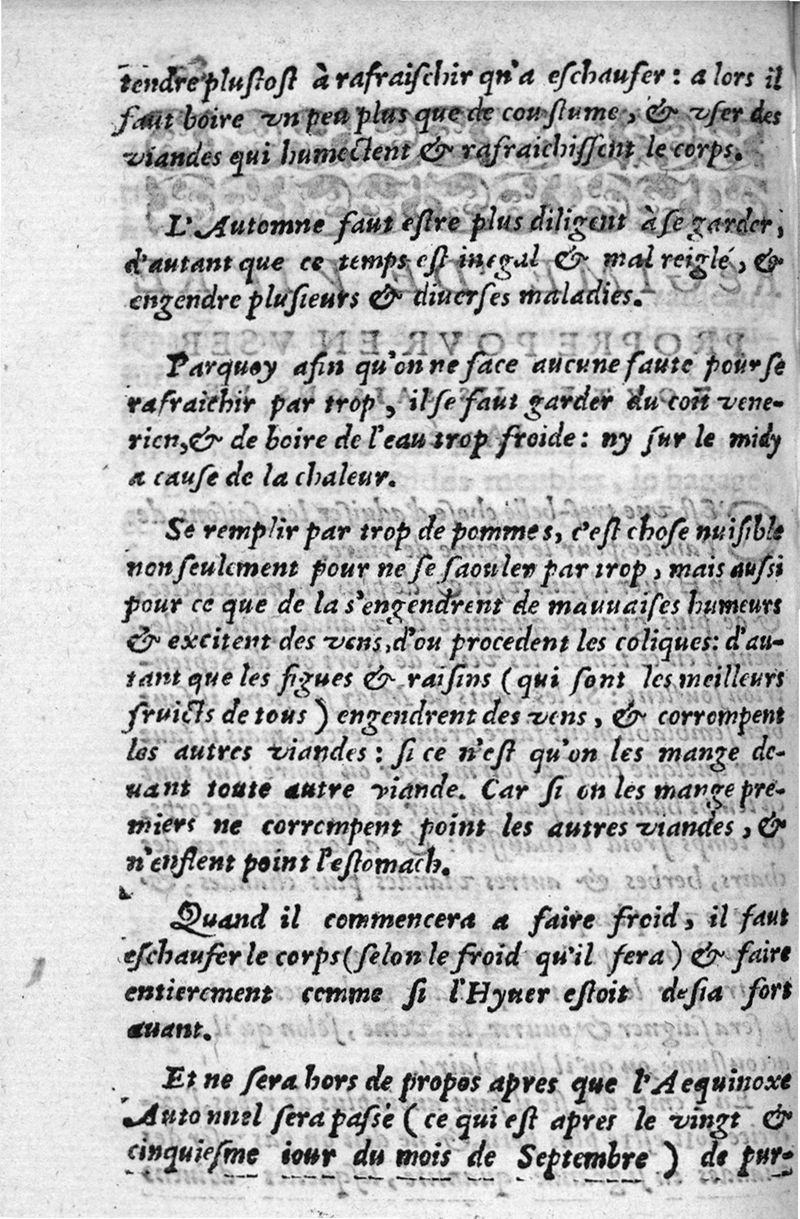 tendre pluſtoſt à rafraiſchir qu'a eſchaufer : a lors il
faut boire vn peu plus que de couſtume, & vſer des
viandes qui humectent & rafraichiſſent le corps.
L'Automne faut eſtre plus diligent à ſe garder,
d'autant que ce temps eſt inegal & mal reiglé, &
engendre pluſieurs & diuerſes maladies.
Parquoy afin qu'on ne face aucune faute pour ſe
rafraichir par trop, il ſe faut garder du coït vene-
rien, & de boire de l'eau trop froide : ny ſur le midy
a cauſe de la chaleur.
Se remplir par trop de pommes, c'eſt choſe nuiſible
non ſeulement pour ne ſe ſaouler par trop, mais auſſi
pour ce que de la s'engendrent de mauuaiſes humeurs
& excitent des vens, d'ou procedent les coliques : d'au-
tant que les figues & raiſins (qui ſont les meilleurs
fruicts de tous) engendrent des vens, & corrompent
les autres viandes : ſi ce n'eſt qu'on les mange de-
uant toute autre viande. Car ſi on les mange pre-
miers ne corrompent point les autres viandes, &
n'enflent point l'eſtomach.
Quand il commencera a faire froid, il faut
eſchaufer le corps (ſelon le froid qu'il fera) & faire
entierement comme ſi l'Hyuer eſtoit deſia fort
auant.
Et ne ſera hors de propos apres que l'Aequinoxe
Automnel ſera paſsé (ce qui eſt apres le vingt &
cinquieſme iour du mois de Septembre) de pur-